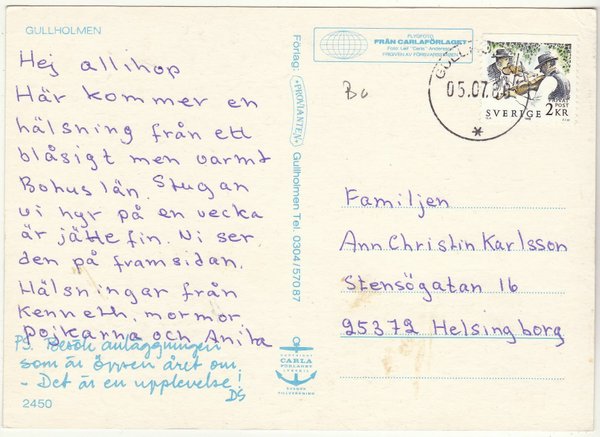 GULLHOLMEN
Hej allihop
Här kommer en
hälsning från ett
blåsigt men varmt
Bohuslän. Stugan
vi hyr på en vecka
är jätte fin. Ni ser
den på framsidan.
Hälsningar från
Kenneth, mormor
pojkarna och Anita
PS. Besök anläggningen
som är öppen året om.
- Det är en upplevelse!
DS
2450
Förlag: "PROVIANTEN" Gullholmen Tel. 0304/57087
FLYGFOTO
FRÅN CARLAFÖRLAGET
Foto: Leif "Carla" Andersson
COPYRIGHT
CARLA
FÖRLAGET
SVENSK
TILLVERKNING
Bo
05.07.8
SVERIGE 2 KR
PRIVAT
POST
Familjen
Ann Christin Karlsson
Stensögatan 16
25372 Helsingborg